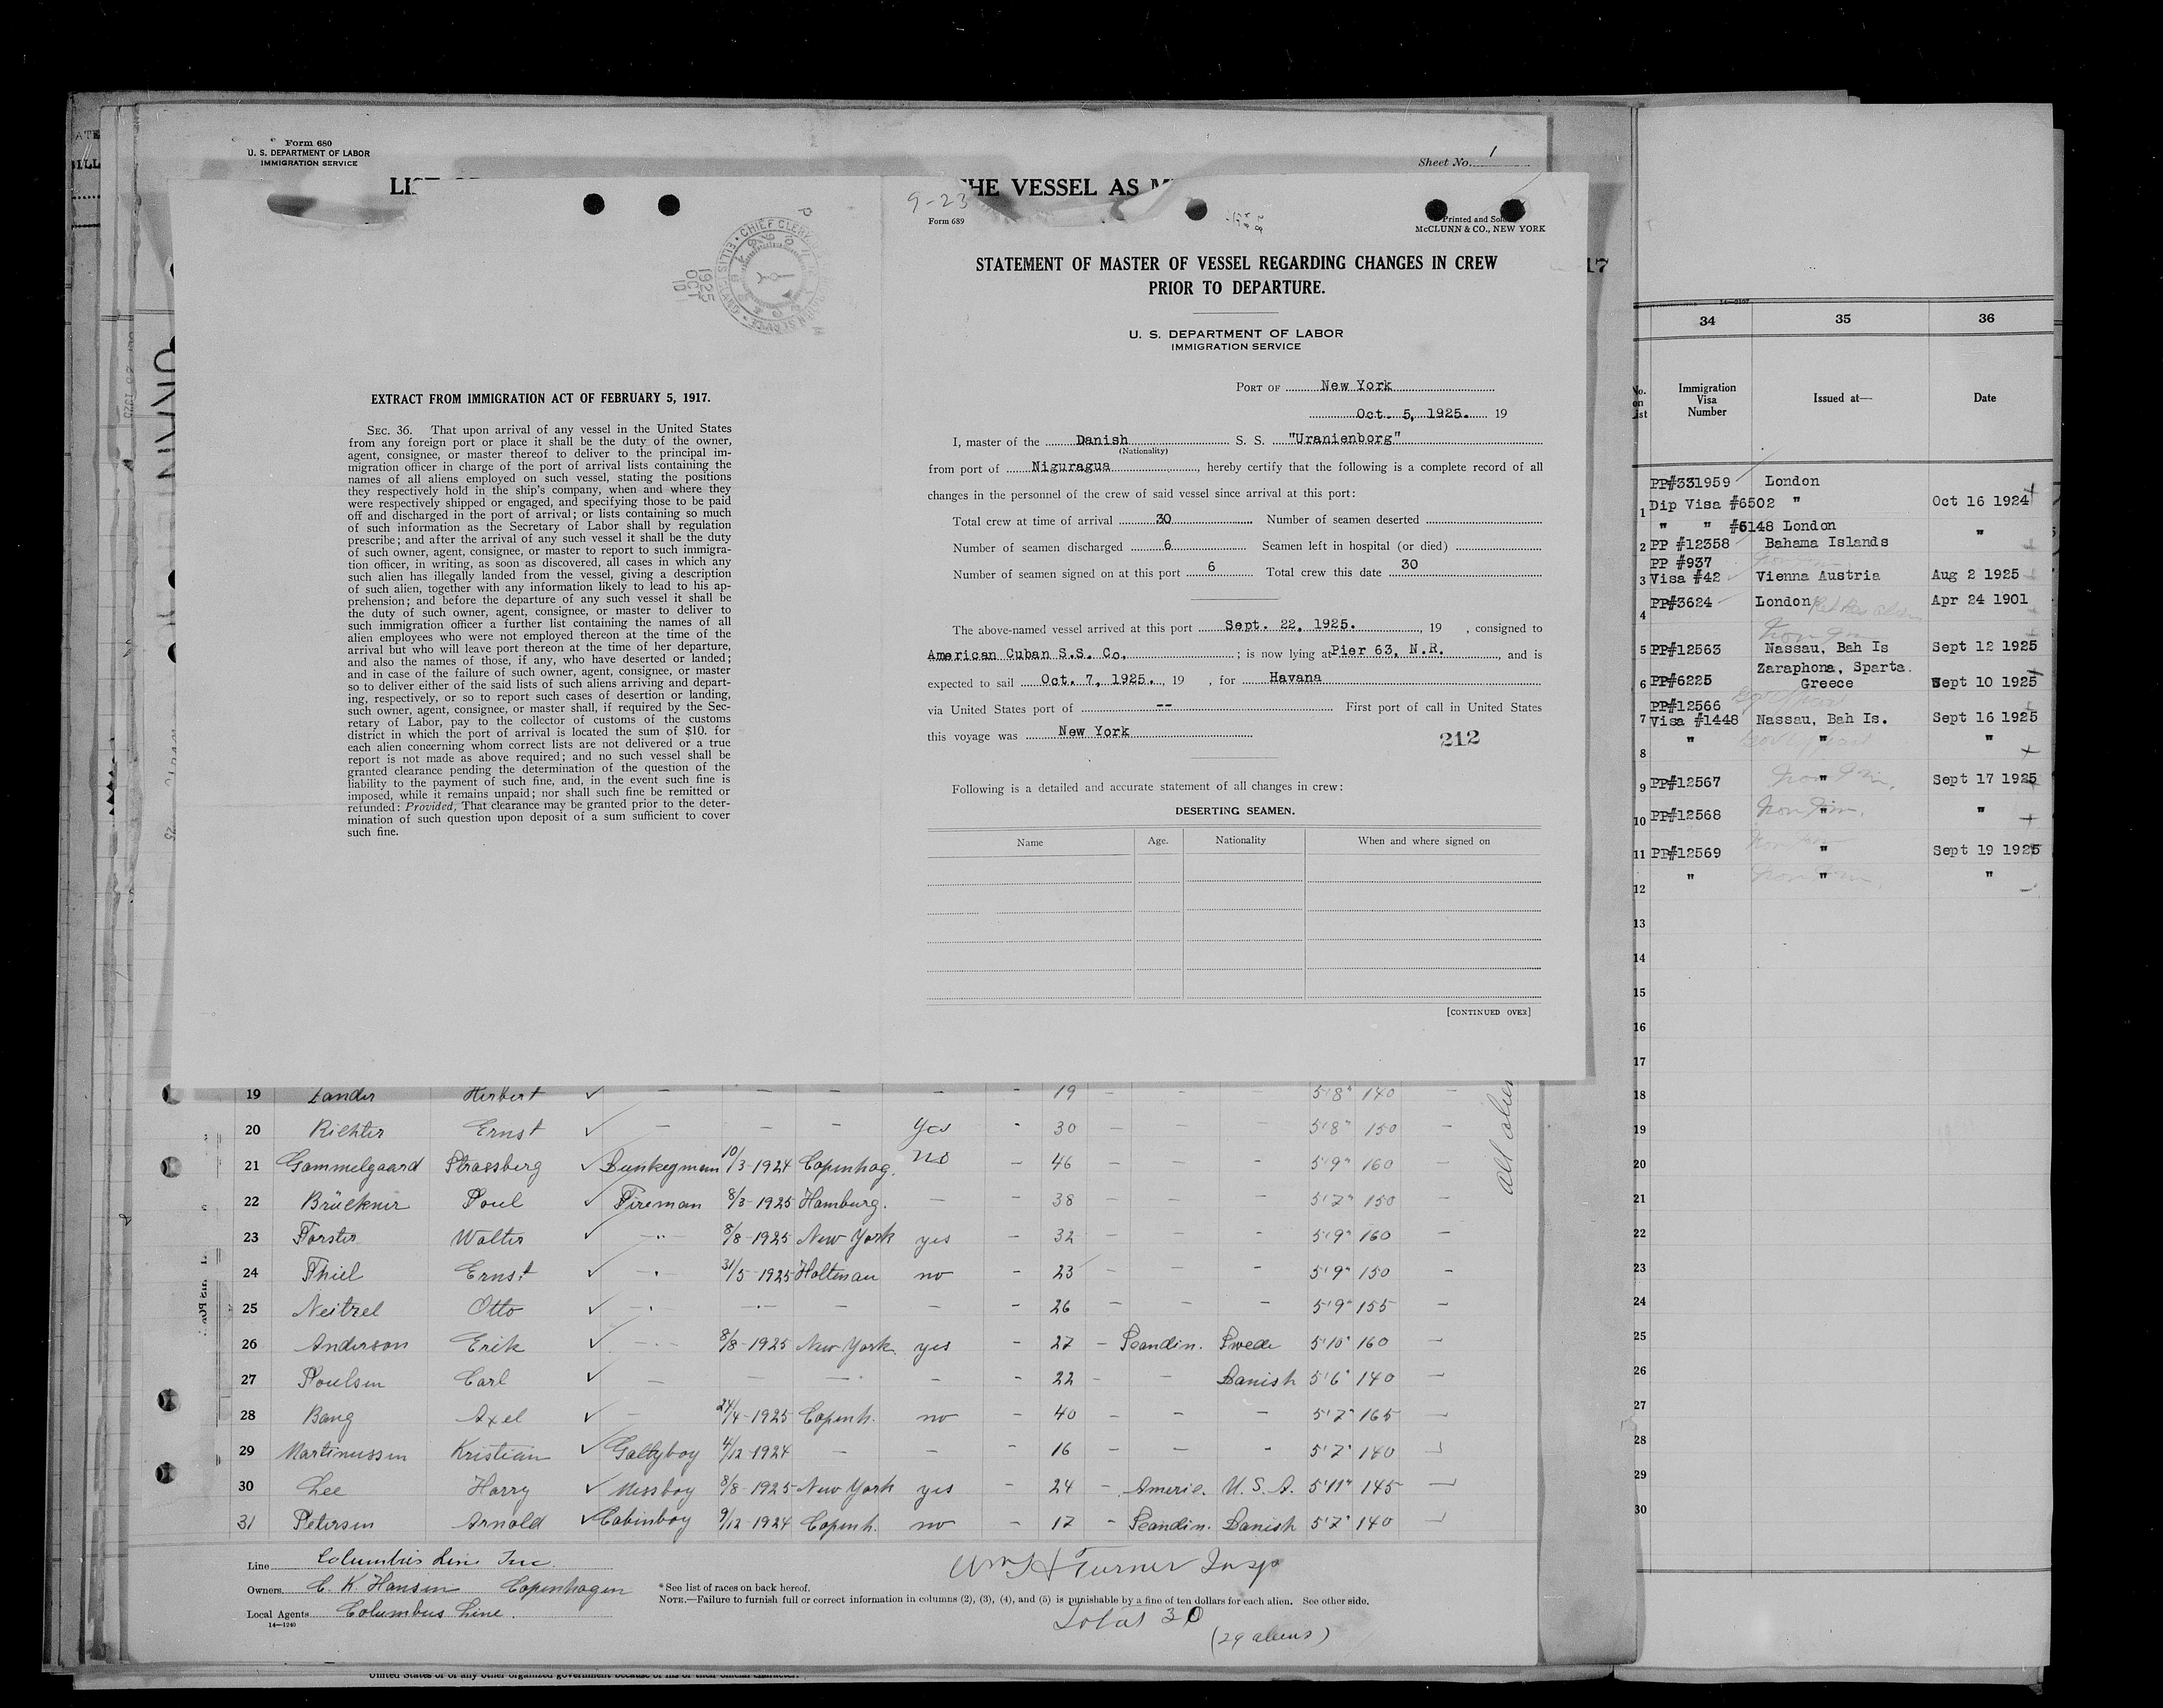 Form 680
U. S. DEPARTMENT OF LABOR
IMMIGRATION SERVICE
Sheet No. 1
THE VESSEL AS
EXTRACT FROM IMMIGRATION ACT OF FEBRUARY 5, 1917.
SEC. 36. That upon arrival of any vessel in the United States
from any foreign port or place it shall be the duty of the owner,
agent, consignee, or master thereof to deliver to the principal im-
migration officer in charge of the port of arrival lists containing the
names of all aliens employed on such vessel, stating the positions
they respectively hold in the ship's company, when and where they
were respectively shipped or engaged, and specifying those to be paid
off and discharged in the port of arrival; or lists containing so much
of such information as the Secretary of Labor shall by regulation
prescribe; and after the arrival of any such vessel it shall be the duty
of such owner, agent, consignee, or master to report to such immigra-
tion officer, in writing, as soon as discovered, all cases in which any
such alien has illegally landed from the vessel, giving a description
of such alien, together with any information likely to lead to his ap-
prehension; and before the departure of any such vessel it shall be
the duty of such owner, agent, consignee, or master to deliver to
such immigration officer a further list containing the names of all
alien employees who were not employed thereon at the time of the
arrival but who will leave port thereon at the time of her departure,
and also the names of those, if any, who have deserted or landed;
and in case of the failure of such owner, agent, consignee, or master
so to deliver either of the said lists of such aliens arriving and depart-
ing, respectively, or so to report such cases of desertion or landing,
such owner, agent, consignee, or master shall, if required by the Sec-
retary of Labor, pay to the collector of customs of the customs
district in which the port of arrival is located the sum of $10. for
each alien concerning whom correct lists are not delivered or a true
report is not made as above required; and no such vessel shall be
granted clearance pending the determination of the question of the
liability to the payment of such fine, and, in the event such fine is
imposed, while it remains unpaid; nor shall such fine be remitted or
refunded: Provided, That clearance may be granted prior to the deter-
mination of such question upon deposit of a sum sufficient to cover
such fine.
1925 OCT 10
9-23
Form 689
Printed and Sold
McCLUNN & CO., NEW YORK
STATEMENT OF MASTER OF VESSEL REGARDING CHANGES IN CREW
PRIOR TO DEPARTURE.
U. S. DEPARTMENT OF LABOR
IMMIGRATION SERVICE
PORT OF New York
Oct. 5, 1925. 19
I, master of the Danish S. S. "Uranienborg"
(Nationality)
from port of Niguragua, hereby certify that the following is a complete record of all
changes in the personnel of the crew of said vessel since arrival at this port:
Total crew at time of arrival 30 Number of seamen deserted
Number of seamen discharged 6 Seamen left in hospital (or died)
Number of seamen signed on at this port 6 Total crew this date 30
The above-named vessel arrived at this port Sept. 22, 1925., 19 , consigned to
American Cuban S.S. Co. ; is now lying at Pier 63, N.R., and is
expected to sail Oct. 7, 1925., 19 , for Havana
via United States port of -- First port of call in United States
this voyage was New York
212
Following is a detailed and accurate statement of all changes in crew:
DESERTING SEAMEN.
Name Age. Nationality When and where signed on
[CONTINUED OVER]
34 35 36
No. on List Immigration Visa Number Issued at— Date
PP#331959 London
1 Dip Visa #6502 " Oct 16 1924
" " #6148 London
2 PP #12358 Bahama Islands "
PP #937
3 Visa #42 Vienna Austria Aug 2 1925
4 PP#3624 London Apr 24 1901
5 PP#12563 Nassau, Bah Is Sept 12 1925
Zaraphona, Sparta.
6 PP#6225 Greece Sept 10 1925
PP#12566
7 Visa #1448 Nassau, Bah Is. Sept 16 1925
8 " " "
9 PP#12567 " Sept 17 1925
10 PP#12568 " "
11 PP#12569 " Sept 19 1925
12 " " "
13
14
15
16
17
18
19
20
21
22
23
24
25
26
27
28
29
30
19 Lander Herbert ✓ — — — — - 19 — — — 5'8" 140 —
20 Richter Ernst ✓ — — — yes - 30 — — — 5'8" 150 —
21 Gammelgaard Strassberg ✓ Dunkeyman 10/3-1924 Copenhag. no - 46 — — - 5'9" 160 —
22 Brückner Poul ✓ Fireman 8/3-1925 Hamburg. — - 38 — — - 5'7" 150 —
23 Forster Walter ✓ — 8/8-1925 New York yes - 32 — — - 5'9" 160 —
24 Thiel Ernst ✓ — 31/5-1925 Holtenau no - 23 — — - 5'9" 150 —
25 Neitzel Otto ✓ — — — — - 26 — — - 5'9" 155 —
26 Anderson Erik ✓ — 8/8-1925 New York yes - 27 - Scandin. Swede 5'10" 160 —
27 Poulsen Carl ✓ — — — — - 22 - — Danish 5'6" 140 —
28 Bang Axel ✓ — 24/4-1925 Copenh. no - 40 — — - 5'7" 165 —
29 Martinussen Kristian ✓ Galleyboy 4/12-1924 — — - 16 — — - 5'7" 140
30 Lee Harry ✓ Messboy 8/8-1925 New York yes - 24 - Americ. U. S. A. 5'11" 145 —
31 Petersen Arnold ✓ Cabinboy 9/12-1924 Copenh. no - 17 - Scandin. Danish 5'7" 140
Line Columbus Line Inc.
Owners C. K. Hansen Copenhagen
Local Agents Columbus Line.
14—1240
Wm H Turner Insp
*See list of races on back hereof.
NOTE.—Failure to furnish full or correct information in columns (2), (3), (4), and (5) is punishable by a fine of ten dollars for each alien. See other side.
Total 30
(29 aliens)
United States or of any other organized government because of his or their official character.